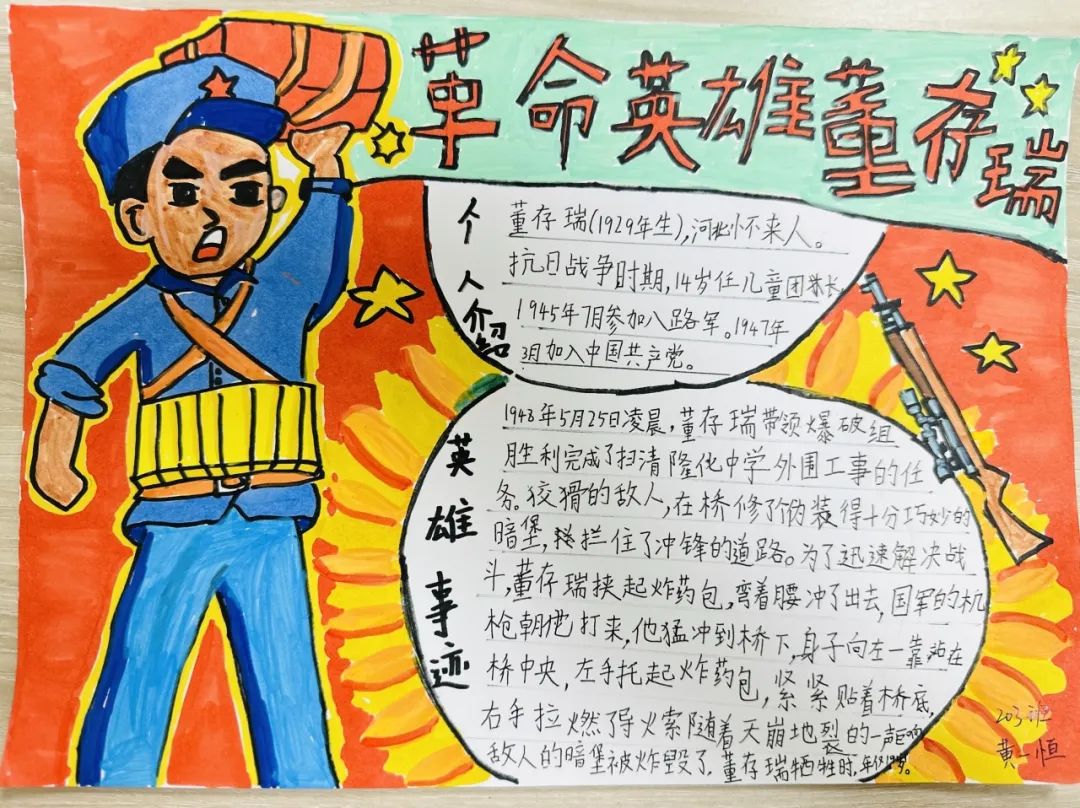 革命英雄董存瑞
个人介绍
董存瑞(1929年生),河北怀来人。
抗日战争时期,14岁任儿童团长
1945年7月参加八路军。1947年
3月加入中国共产党。
英雄事迹
1948年5月25日凌晨,董存瑞带领爆破组
胜利完成了扫清隆化中学外围工事的任
务。狡猾的敌人,在桥修了伪装得十分巧妙的
暗堡,拦住了冲锋的道路。为了迅速解决战
斗,董存瑞挟起炸药包,弯着腰冲了出去,国军的机
枪朝他打来,他猛冲到桥下,身子向左一靠站在
桥中央,左手托起炸药包,紧紧贴着桥底,
右手拉燃了导火索随着天崩地裂的一声巨响
敌人的暗堡被炸毁了,董存瑞牺牲时,年仅19岁。
203班
黄一恒